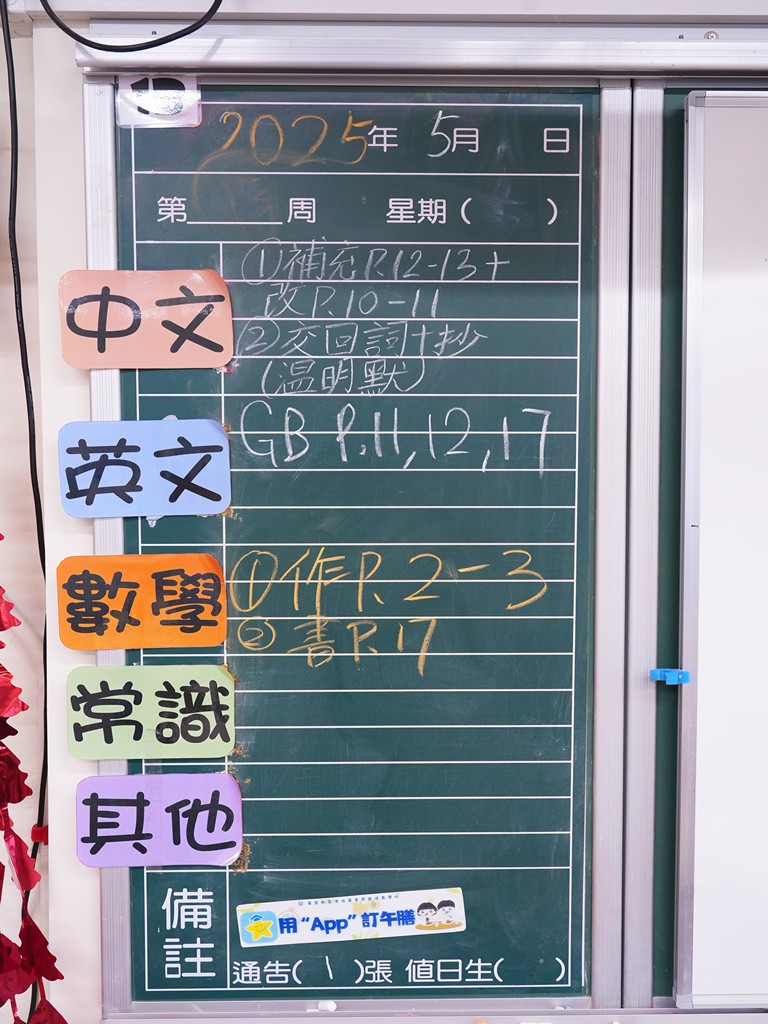 1D
2025年 5月 日
第______周 星期( )
中文
①補充P.12-13+
改P.10-11
②交回詞+抄
(温明默)
英文
GB P.11,12,17
數學
①作P.2-3
②書P.17
常識
其他
備註
用“App”訂午膳
通告( \ )張 值日生( )